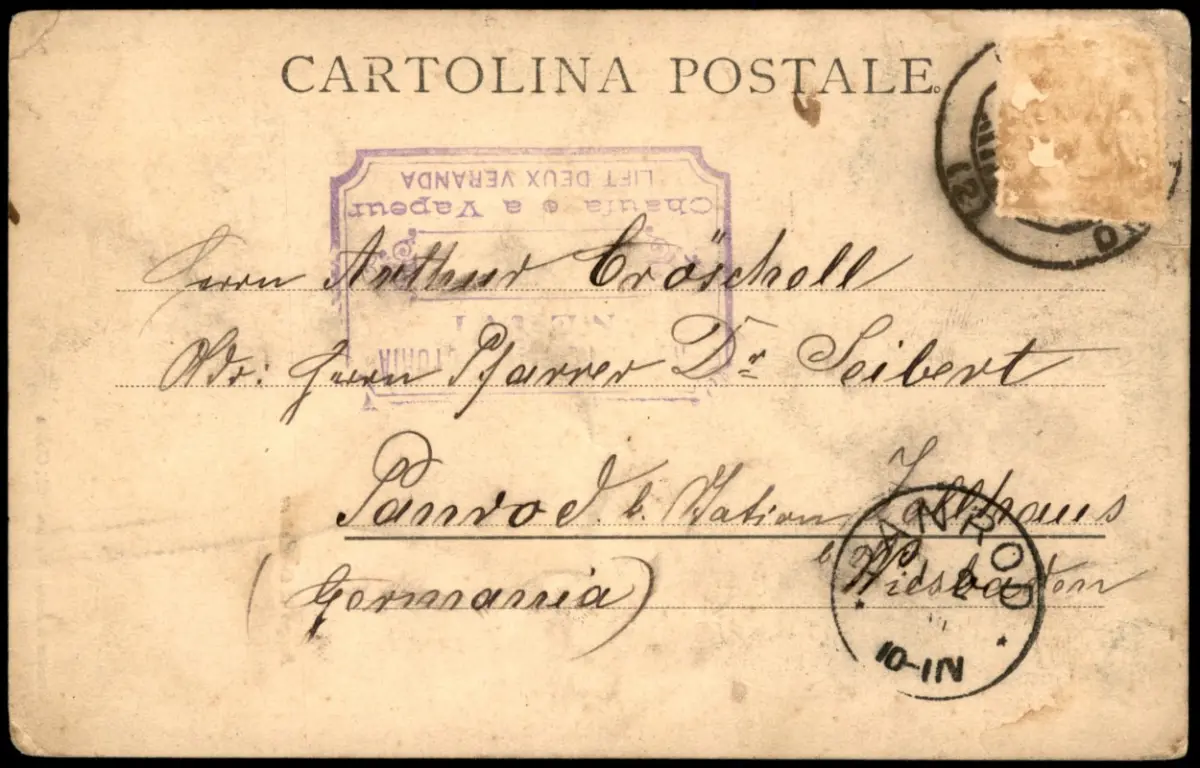 CARTOLINA POSTALE.
LIFT DEUX VERANDA
Chaufa e a Vapeur
NERVI
Herrn Arthur Cröschell
Adr: Herrn Pfarrer Dr. Seibert
Panrod b. Station Zollhaus
b Wiesbaden
(Germania)
PANROD
10-11N